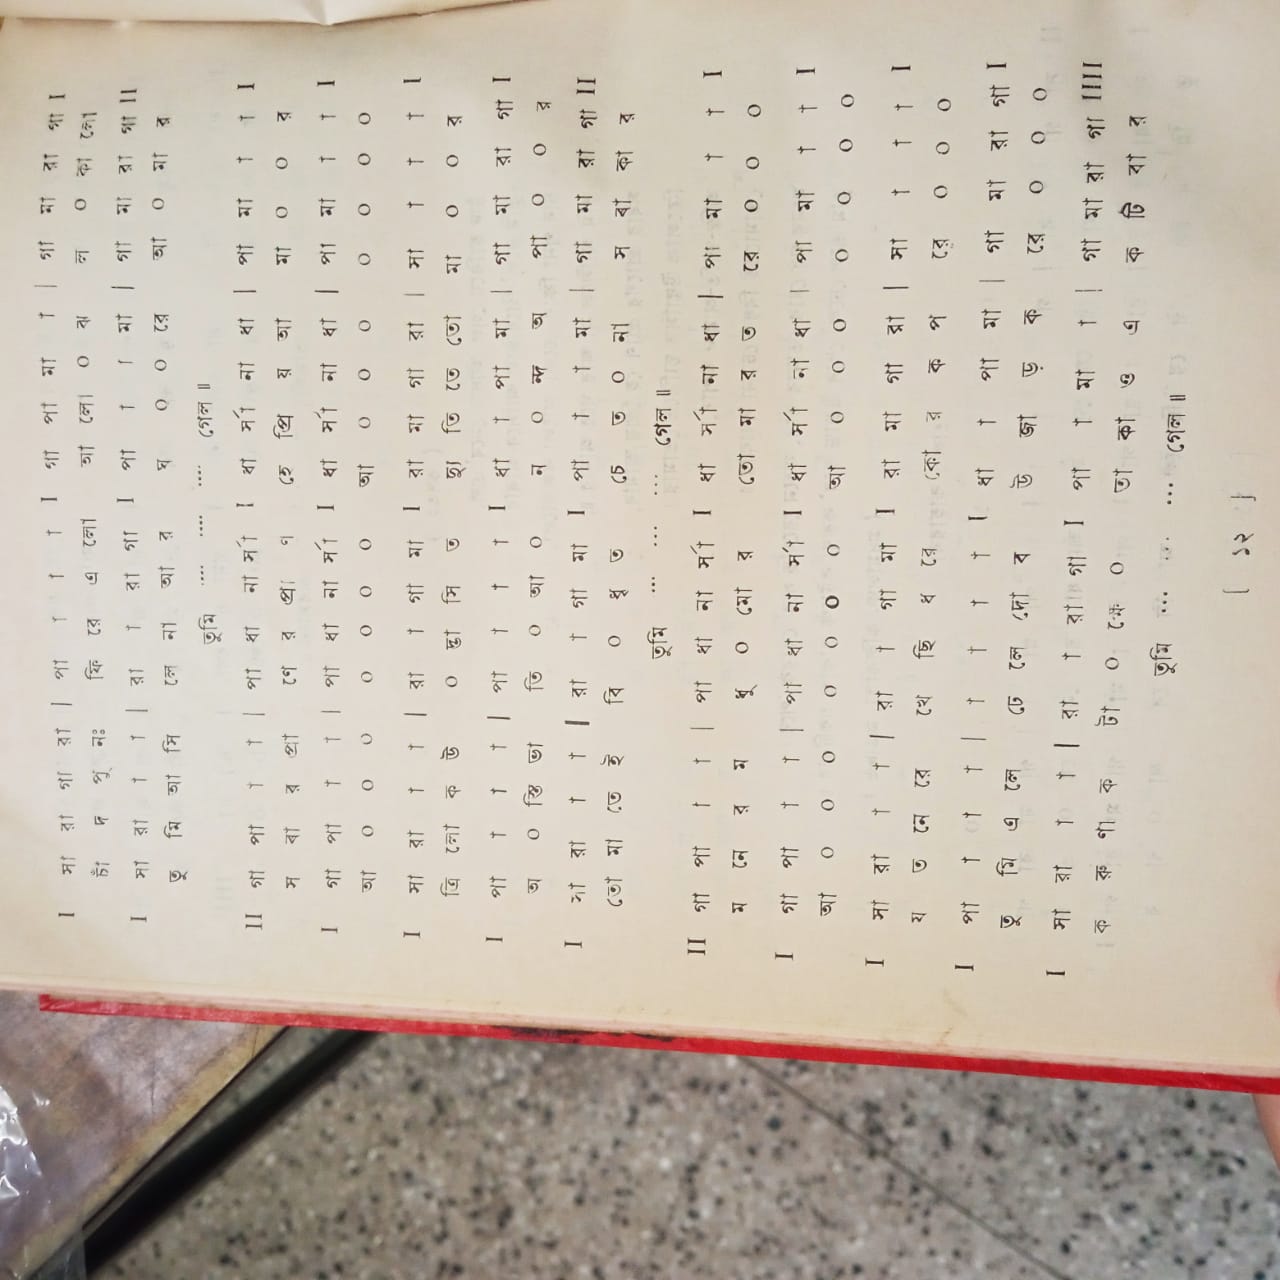 I সা রা গা রা | পা া া া I গা পা মা া | গা মা রা গা I
চাঁ দ পু নঃ ফি রে এ লো আ লো ০ ঝ ল ০ কা লো
I সা রা া া | রা া রা গা I পা া া মা | গা মা রা গা II
তু মি আ সি লে না আ র ঘ ০ ০ রে আ ০ মা র
তুমি .... .... .... গেল ॥
II গা পা া া | পা ধা না র্সা I ধা র্সা না ধা | পা মা া া I
স বা র প্রা ণে র প্রা ণ হে প্রি য় আ মা ০ ০ র
I গা পা া া | পা ধা না র্সা I ধা র্সা না ধা | পা মা া া I
আ ০ ০ ০ ০ ০ ০ ০ আ ০ ০ ০ ০ ০ ০ ০
I সা রা া া | রা া গা মা I রা মা গা রা | সা া া া I
ত্রি লো ক উ ০ দ্ভা সি ত দ্যু তি তে তো মা ০ ০ র
I পা া া া | পা া া া I ধা া পা মা | গা মা রা গা I
অ ০ স্তি ভা তি ০ আ ০ ন ০ ন্দ অ পা ০ ০ র
I সা রা া া | রা া গা মা I পা া া মা | গা মা রা গা II
তো মা তে ই বি ০ ধৃ ত চে ত ০ না স বা কা র
তুমি ... ... ... গেল ॥
II গা পা া া | পা ধা না র্সা I ধা র্সা না ধা | পা মা া া I
ম নে র ম ধু ০ মো র তো মা র ত রে ০ ০ ০
I গা পা া া | পা ধা না র্সা I ধা র্সা না ধা | পা মা া া I
আ ০ ০ ০ ০ ০ ০ ০ আ ০ ০ ০ ০ ০ ০ ০
I সা রা া া | রা া গা মা I রা মা গা রা | সা া া া I
য ত নে রে খে ছি ধ রে কো র ক প রে ০ ০ ০
I পা া া া | া া া া I ধা া পা মা | গা মা রা গা I
তু মি এ লে ঢে লে দো ব উ জা ড় ক রে ০ ০ ০
I সা রা া া | রা া রা গা I পা া মা া | গা মা রা গা IIII
ক রু ণা ক টা ০ ক্ষে ০ তা কা ও এ ক টি বা র
তুমি ... ... ... গেল ॥
[ ১২ ]